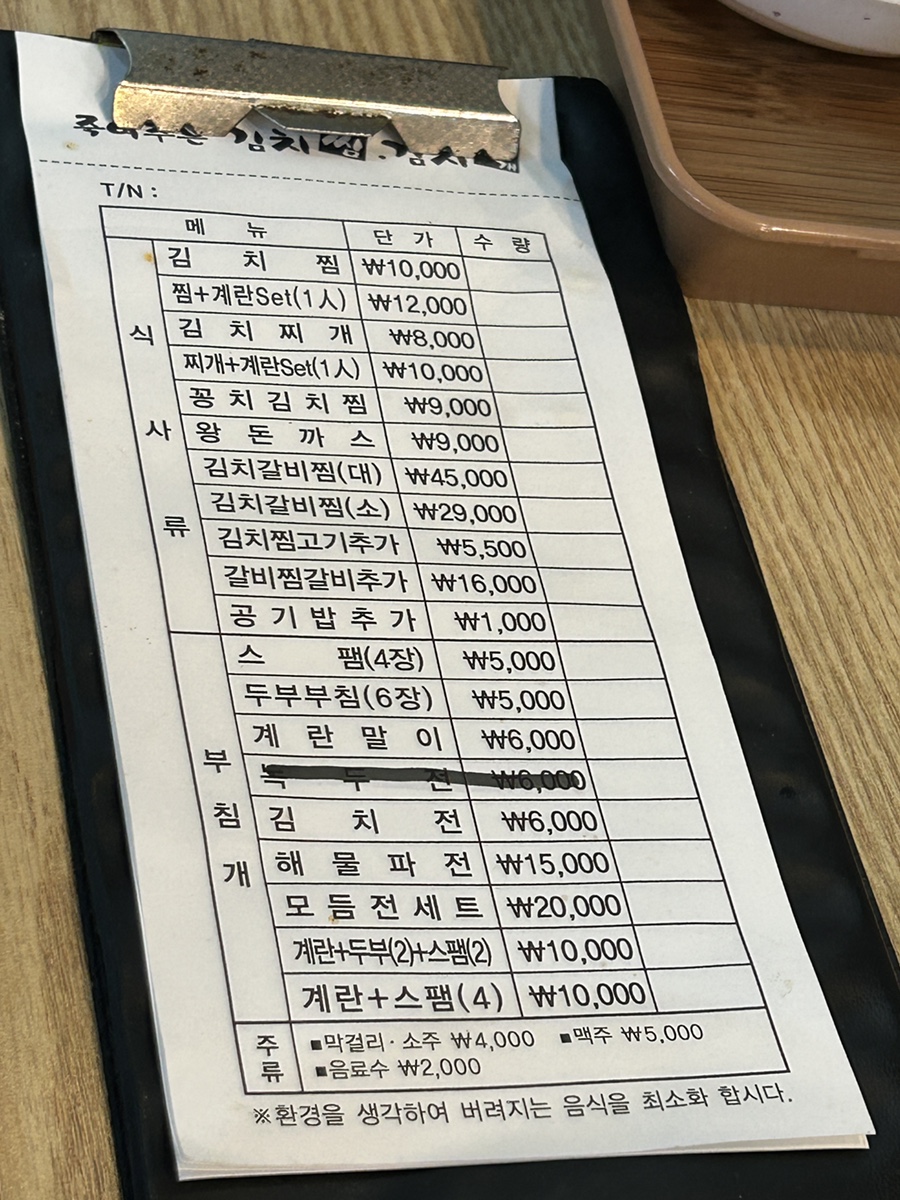 죽여주는 김치찜.김치찌개
T/N :
메 뉴 단 가 수 량
식사류
김 치 찜 ₩10,000
찜+계란Set(1人) ₩12,000
김 치 찌 개 ₩8,000
찌개+계란Set(1人) ₩10,000
꽁 치 김 치 찜 ₩9,000
왕 돈 까 스 ₩9,000
김치갈비찜(대) ₩45,000
김치갈비찜(소) ₩29,000
김치찜고기추가 ₩5,500
갈비찜갈비추가 ₩16,000
공 기 밥 추 가 ₩1,000
부침개
스 팸(4장) ₩5,000
두부부침(6장) ₩5,000
계 란 말 이 ₩6,000
녹 두 전 ₩6,000
김 치 전 ₩6,000
해 물 파 전 ₩15,000
모 듬 전 세 트 ₩20,000
계란+두부(2)+스팸(2) ₩10,000
계란+스팸(4) ₩10,000
주류
■막걸리· 소주 ₩4,000 ■맥주 ₩5,000
■음료수 ₩2,000
※환경을 생각하여 버려지는 음식을 최소화 합시다.